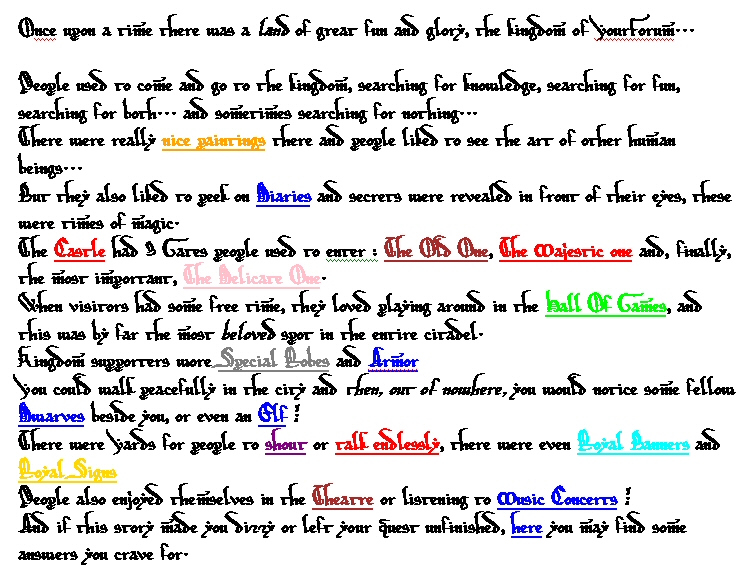 Once upon a time there was a land of great fun and glory, the kingdom of YourForum...
People used to come and go to the kingdom, searching for knowledge, searching for fun,
searching for both... and sometimes searching for nothing...
There were really nice paintings there and people liked to see the art of other human
beings...
But they also liked to peek on Diaries and secrets were revealed in front of their eyes, these
were times of magic.
The Castle had 3 Gates people used to enter : The Old One, The Majestic one and, finally,
the most important, The Delicate One.
When visitors had some free time, they loved playing around in the Hall Of Games, and
this was by far the most beloved spot in the entire citadel.
Kingdom supporters wore Special Robes and Armor
You could walk peacefully in the city and then, out of nowhere, you would notice some fellow
Dwarves beside you, or even an Elf !
There were Yards for people to shout or talk endlessly, there were even Royal Banners and
Royal Signs
People also enjoyed themselves in the Theatre or listening to Music Concerts !
And if this story made you dizzy or left your quest unfinished, here you may find some
answers you crave for.